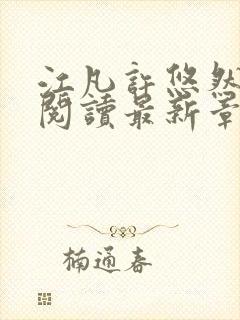 江凡許悠然
閱讀最新章
楠通春